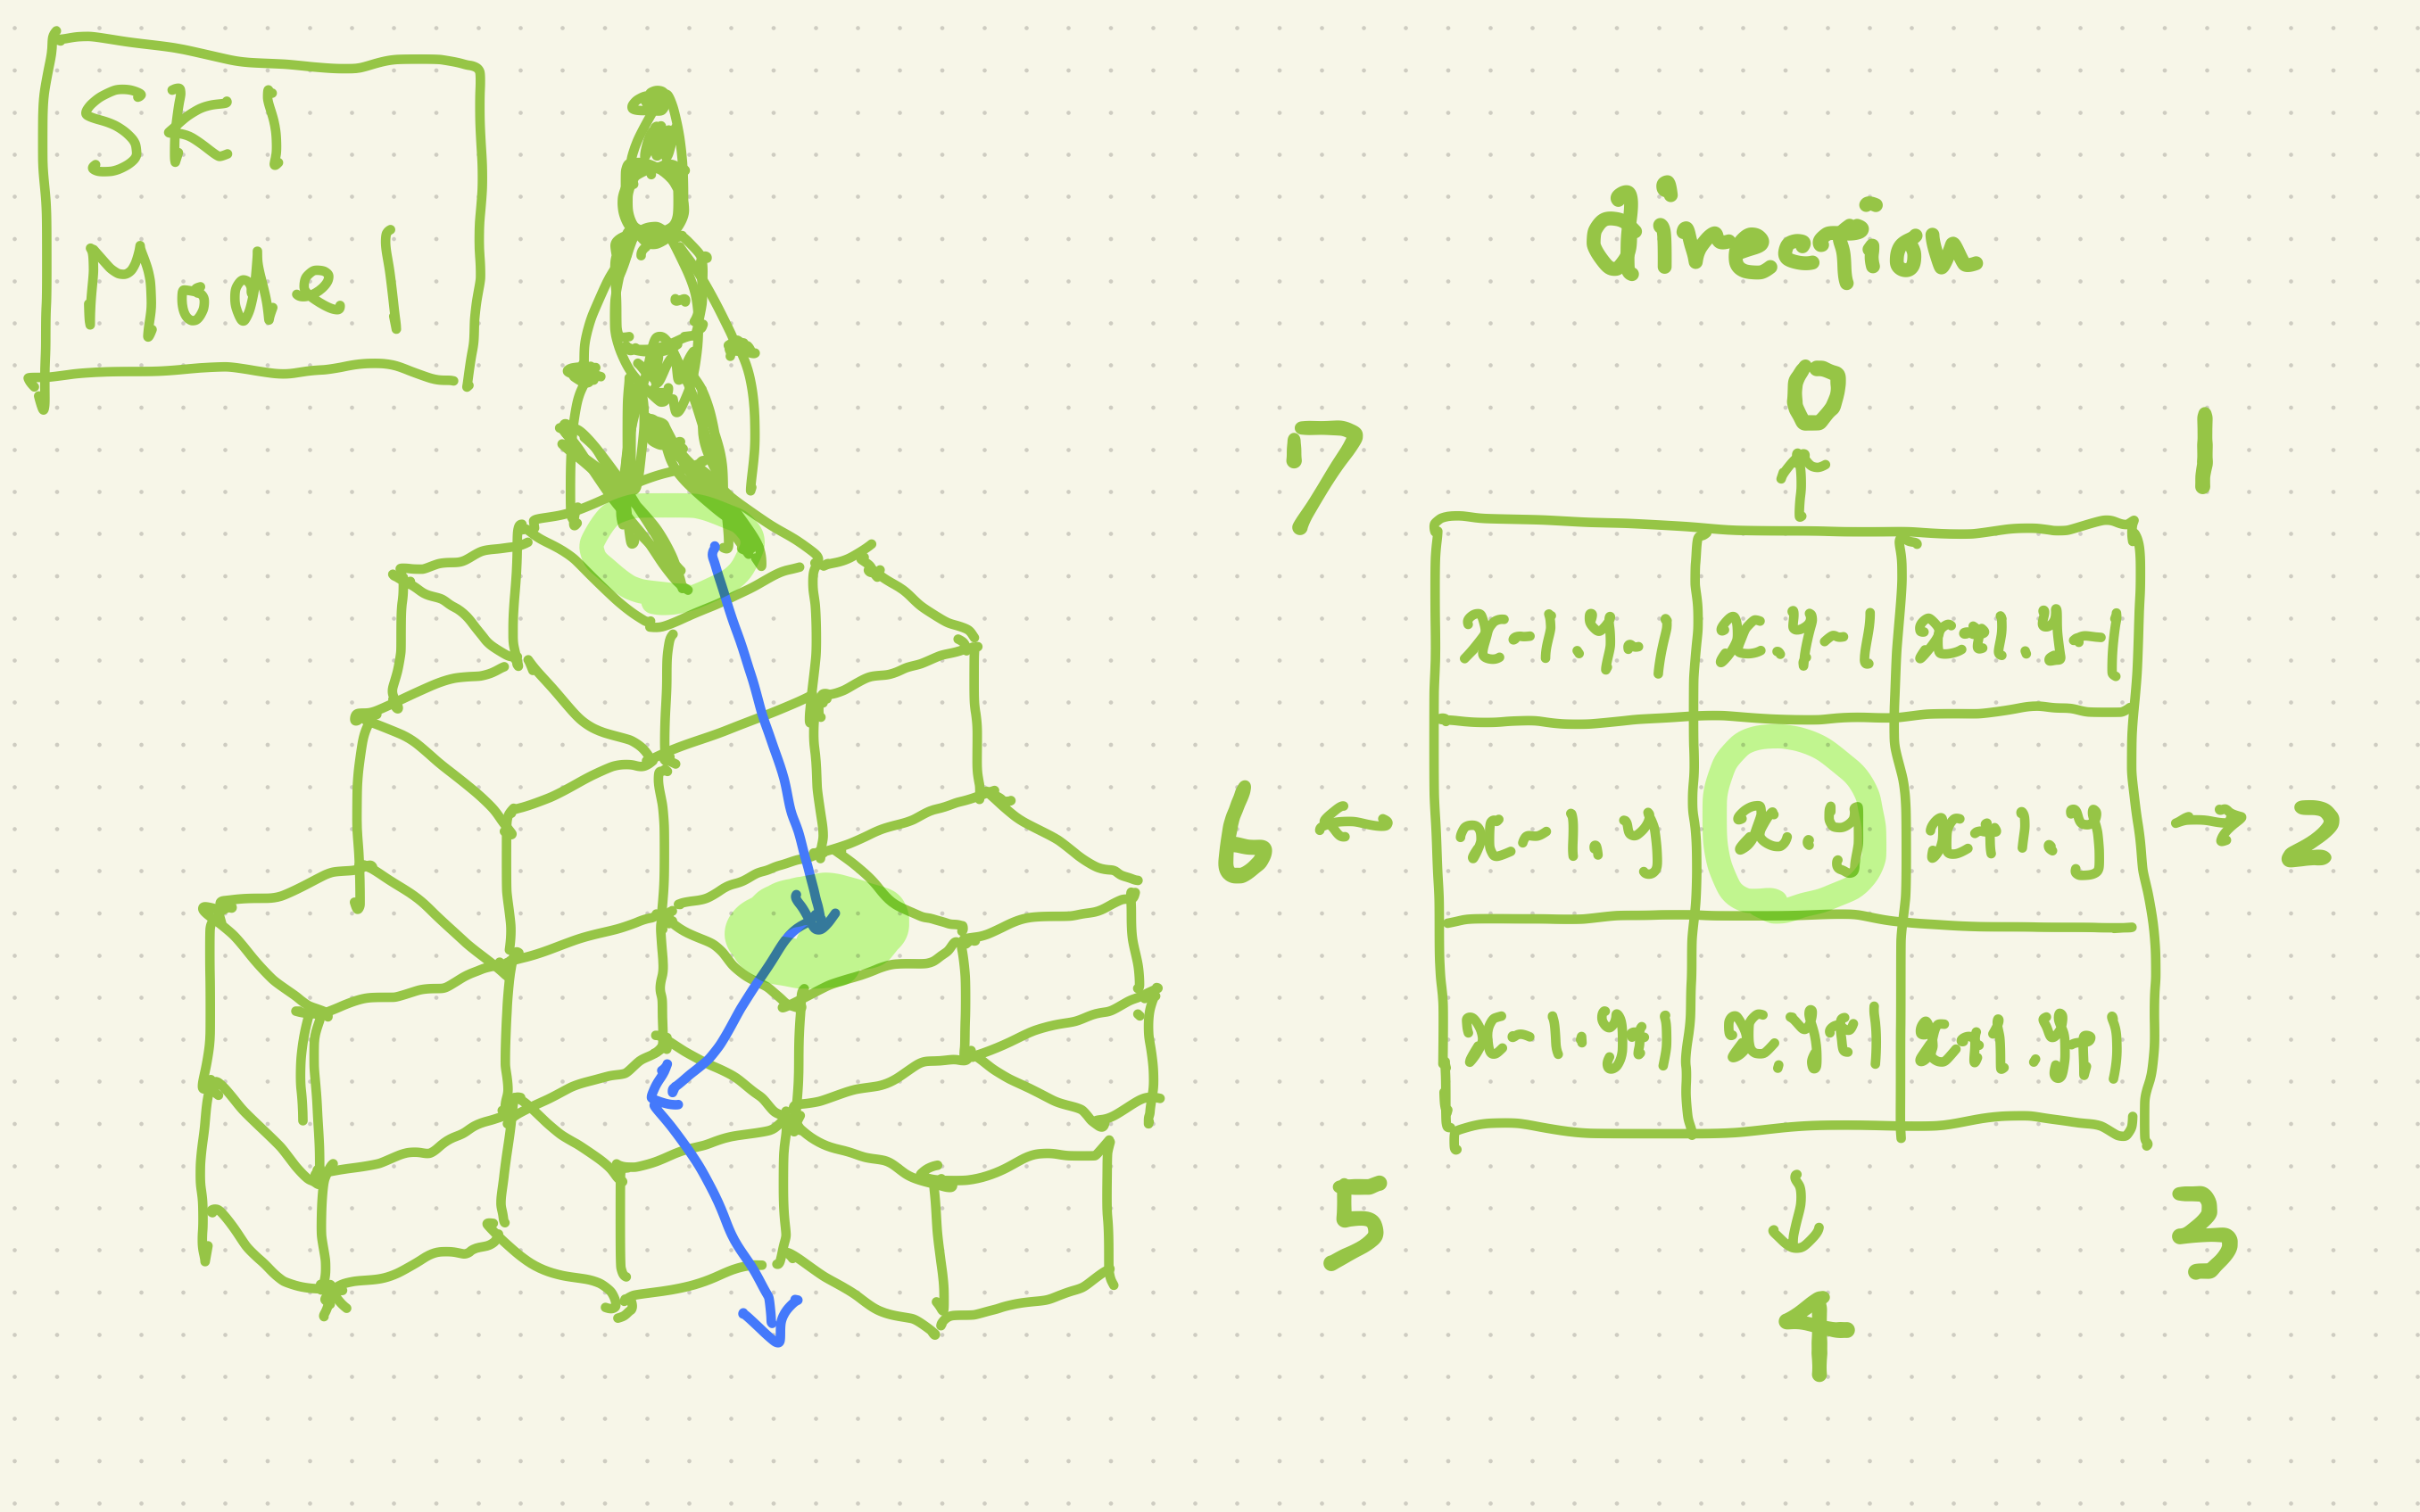 SKI
Model
direction
0
7 1
x-1.y-1 x.y-1 x+1.y-1
6 x-1.y x.y x+1.y 2
x-1.y+1 x.y+1 x+1.y+1
5 3
4